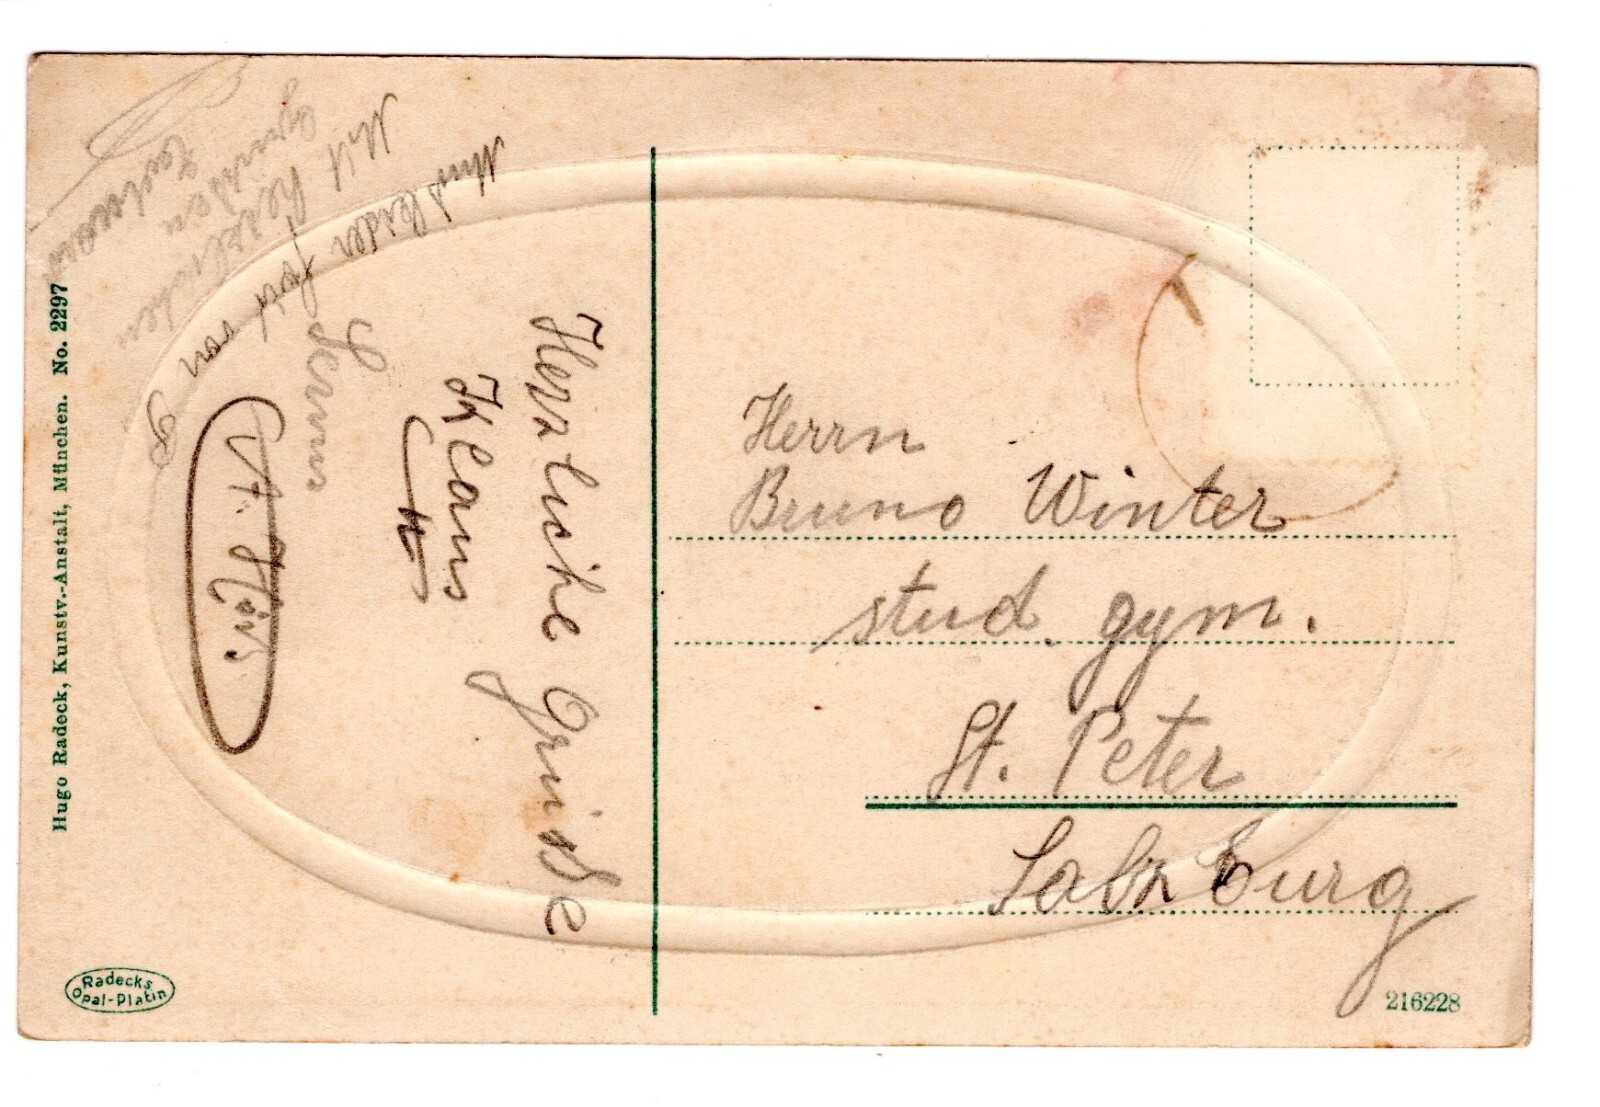 Muß leider fort von
Mit herzlichen
Grüßen
Servus
Herzliche Grüsse
Klaus
Herrn
Bruno Winter
stud. gym.
St. Peter
Salzburg
Hugo Radeck, Kunstv.-Anstalt, München. No. 2297
Radecks
Opal-Platin
216228